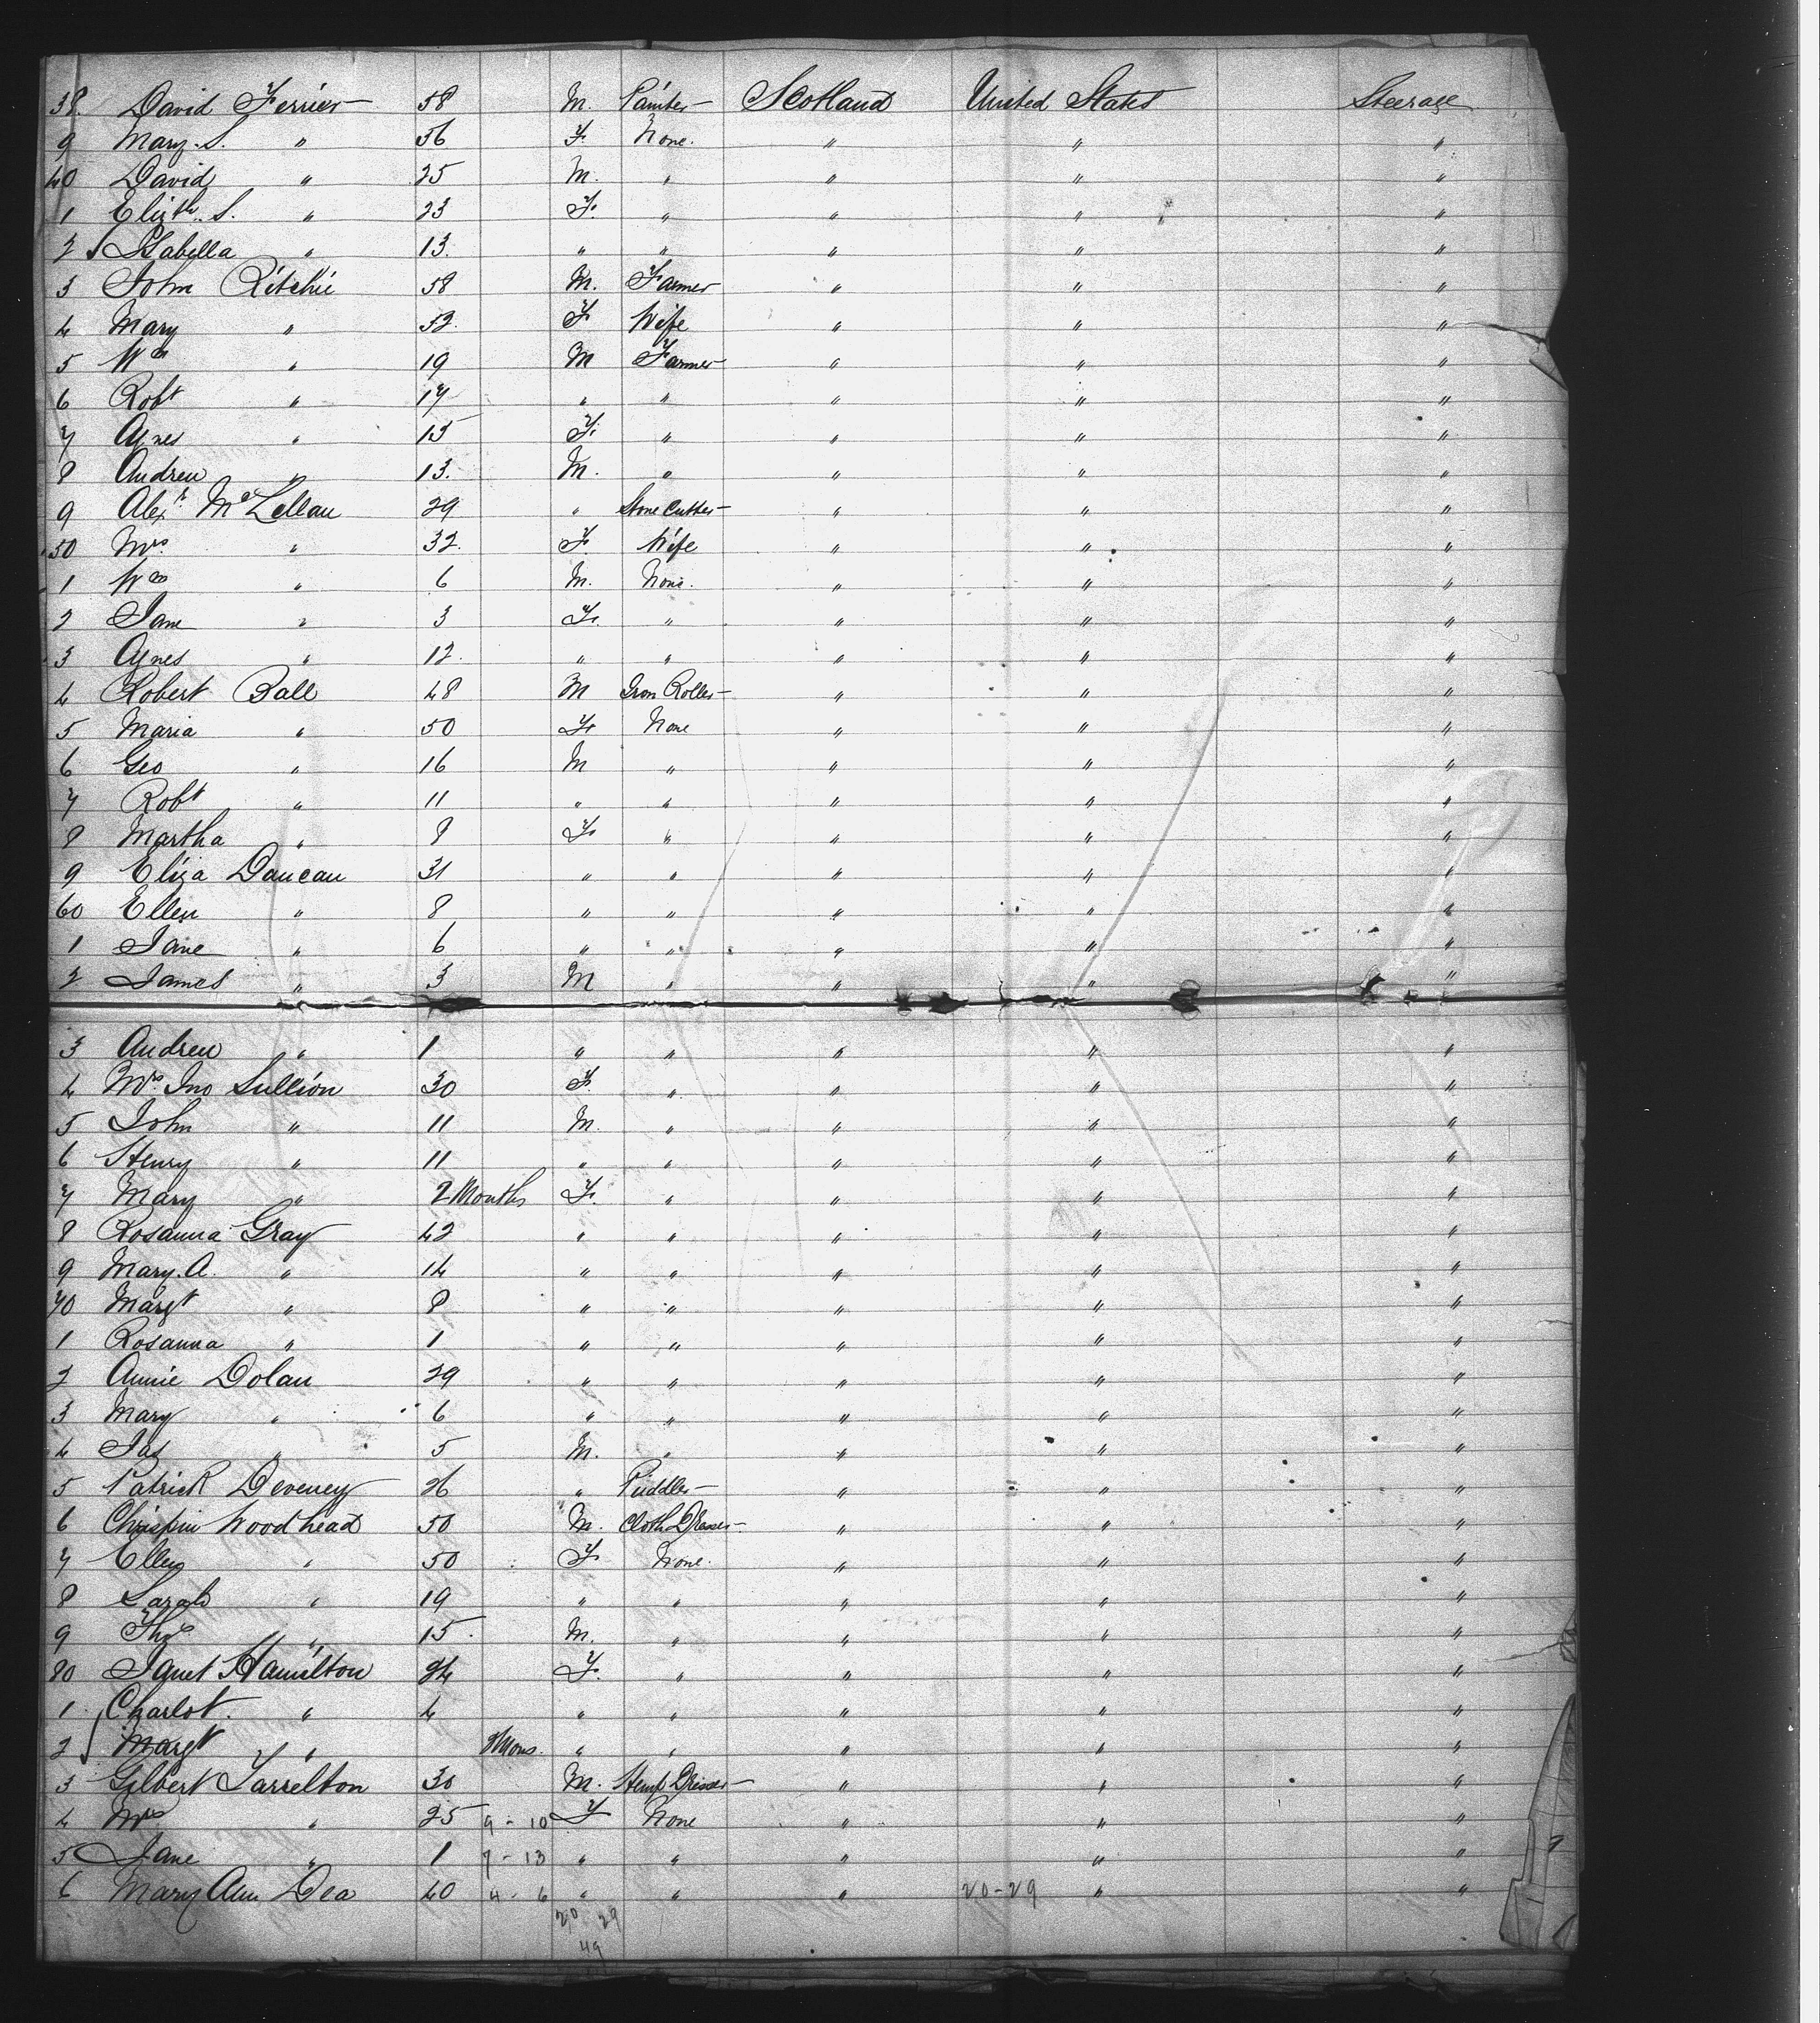 38. David Ferrier 58 M. Painter Scotland United States Steerage
9 Mary. S. " 56 F. None. " " "
40 David " 25 M. " " " "
1 Elizth. S. " 23 F. " " " "
2 Isabella " 13. " " " " "
3 John Ritchie 58 M. Farmer " " "
4 Mary " 52. F Wife " " "
5 Wm " 19 M Farmer " " "
6 Robt " 17 " " " " "
7 Agnes " 15 F. " " " "
8 Andrew " 13. M. " " " "
9 Alexr McLellan 29 " Stone Cutter " " "
50 Mrs. " 32. F. Wife " " "
1 Wm " 6 M. None. " " "
2 Jane " 3 F. " " " "
3 Agnes " 12. " " " " "
4 Robert Ball 48 M Iron Roller " " "
5 Maria " 50 F. None " " "
6 Geo " 16 M " " " "
7 Robt " 11 " " " " "
8 Martha " 8 F. " " " "
9 Eliza Duncan 31 " " " " "
60 Ellen " 8 " " " " "
1 Jane " 6 " " " " "
2 James " 3 M " " " "
3 Andrew " 1 " " " " "
4 Mrs. Jno Sullion 30 F. " " " "
5 John " 11 M. " " " "
6 Henry " 11 " " " " "
7 Mary " 2 Months F. " " " "
8 Rosanna Gray 42 " " " " "
9 Mary. A. " 14 " " " " "
70 Margt " 8 " " " " "
1 Rosanna " 1 " " " " "
2 Annie Dolan 29 " " " " "
3 Mary " 6 " " " " "
4 Jas " 5 M. " " " "
5 Patrick Deveney 26 " Puddler " " "
6 Chrispin Woodhead 50 M. Cloth Dresser " " "
7 Ellen " 50 F. None. " " "
8 Sarah " 19 " " " " "
9 Ths " 15. M. " " " "
80 Janet Hamilton 24 F. " " " "
1 Charlot. " 4 " " " " "
2 Margt " Mons. " " " " "
3 Gilbert Tarrelton 30 M. Hemp Dresser " " "
4 Mrs " 25 9 - 10 F None " " "
5 Jane " 1 7 - 13 " " " " "
6 Mary Ann Dea 40 4 - 6 " " " 20-29 " "
20 29
49